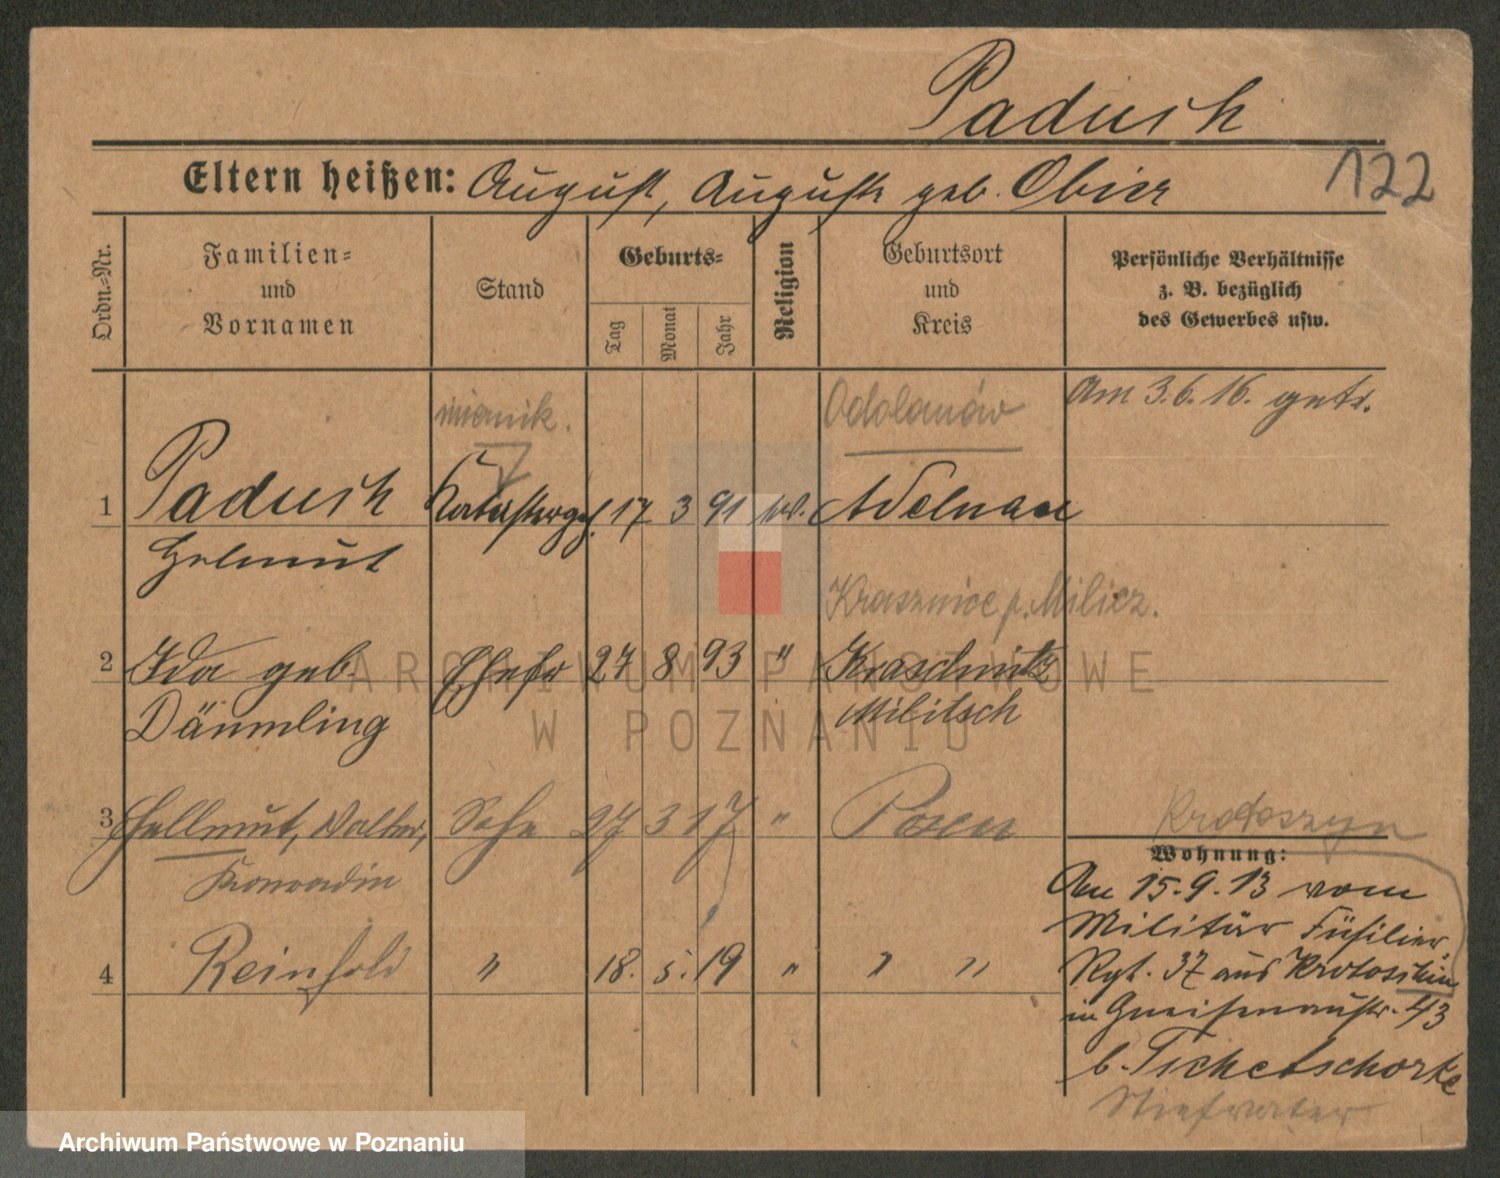 Padusch
Eltern heißen: August, Auguste geb. Obier
122
Ordn.-Nr.
Familien-
und
Vornamen
Stand
Geburts-
Tag
Monat
Jahr
Religion
Geburtsort
und
Kreis
Persönliche Verhältnisse
z. B. bezüglich
des Gewerbes usw.
miernik. Odolanów Am 3.6.16. getr.
1 Padusch Katastergeh. 17 3 91 ev. Adelnau
Helmut
Krasznice p. Milicz.
2 Ida geb. Ehefr 27 8 93 " Kraschnitz
Däumling Militsch
3 Hellmut, Walter, Sohn 27 3 17 " Posen
Konradin
4 Reinhold " 18. 5. 19 " " "
Krotoszyn
Wohnung:
Am 15.9.13 vom
Militär Füsilier
Rgt. 37 aus Krotoschin
in Gneisenaustr. 43
b. Tschetschorke
Stiefvater
ARCHIWUM PAŃSTWOWE
W POZNANIU
Archiwum Państwowe w Poznaniu